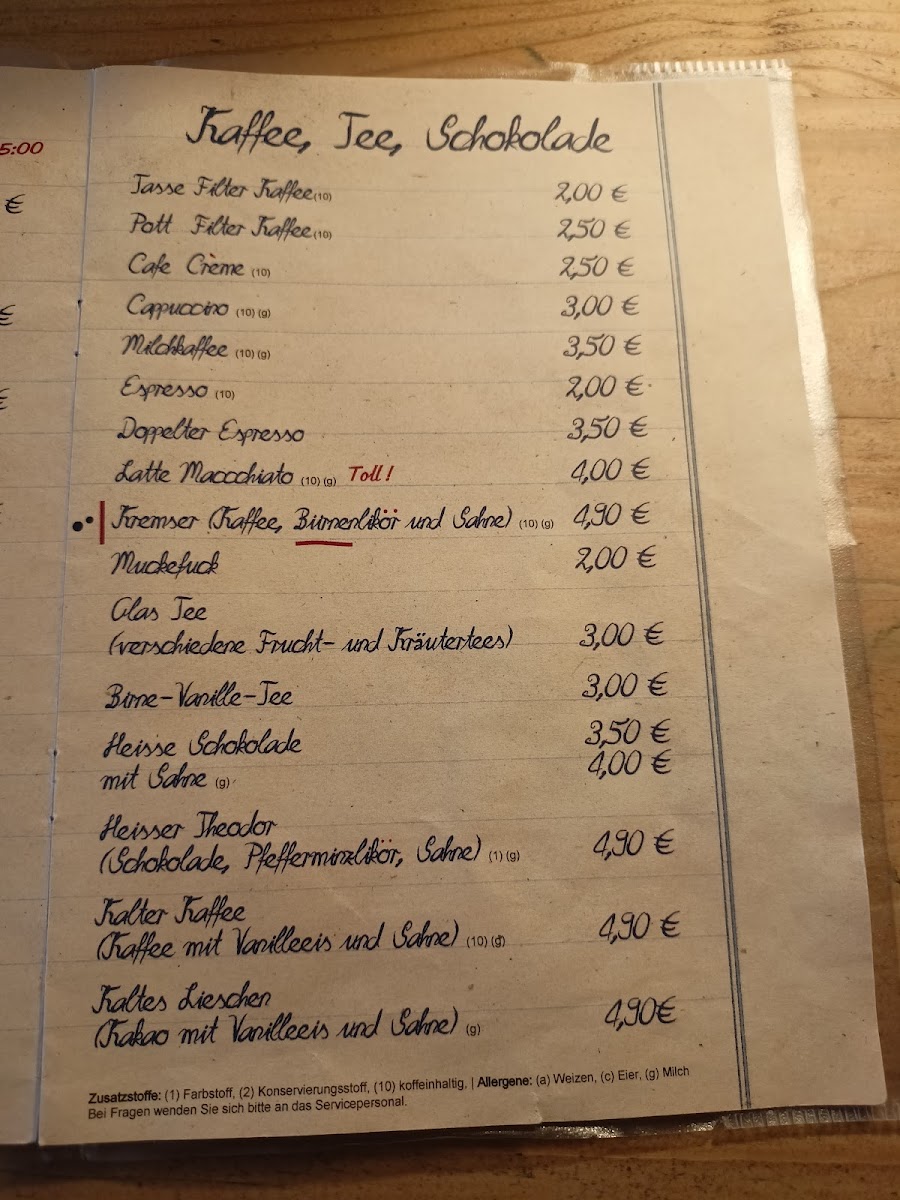 5:00
€
€
€
Kaffee, Tee, Schokolade
Tasse Filter Kaffee (10) 2,00 €
Pott Filter Kaffee (10) 2,50 €
Cafe Crème (10) 2,50 €
Cappuccino (10) (g) 3,00 €
Milchkaffee (10) (g) 3,50 €
Espresso (10) 2,00 €
Doppelter Espresso 3,50 €
Latte Maccchiato (10) (g) Toll! 4,00 €
Kremser (Kaffee, Birnenlikör und Sahne) (10) (g) 4,90 €
Muckefuck 2,00 €
Glas Tee
(verschiedene Frucht- und Kräutertees) 3,00 €
Birne-Vanille-Tee 3,00 €
Heisse Schokolade 3,50 €
mit Sahne (g) 4,00 €
Heisser Theodor
(Schokolade, Pfefferminzlikör, Sahne) (1) (g) 4,90 €
Kalter Kaffee
(Kaffee mit Vanilleeis und Sahne) (10) (g) 4,90 €
Kaltes Lieschen
(Kakao mit Vanilleeis und Sahne) (g) 4,90€
Zusatzstoffe: (1) Farbstoff, (2) Konservierungsstoff, (10) koffeinhaltig, | Allergene: (a) Weizen, (c) Eier, (g) Milch
Bei Fragen wenden Sie sich bitte an das Servicepersonal.